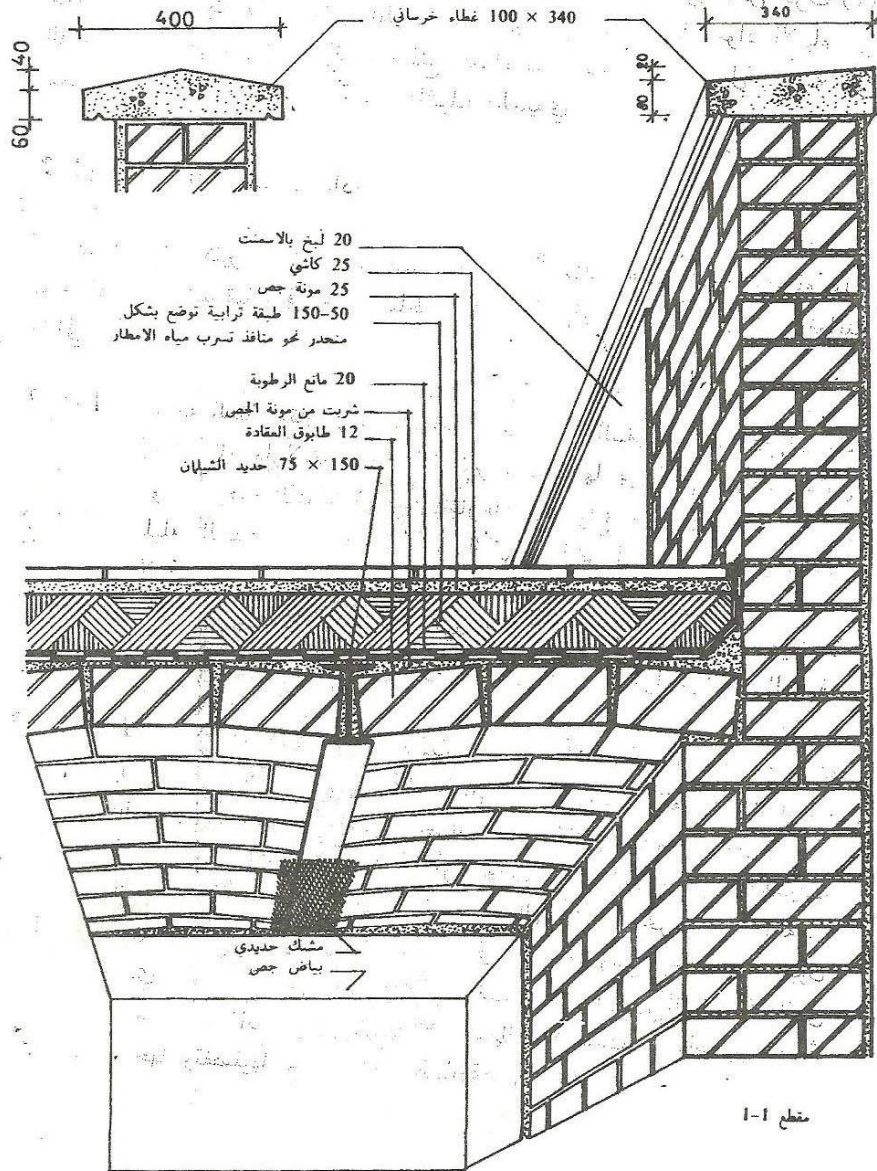 400
340 × 100 غطاء خرساني
340
40
60
20
80
20 لبخ بالاسمنت
25 كاشي
25 مونة جص
50-150 طبقة ترابية توضع بشكل
منحدر نحو منافذ تسرب مياه الامطار
20 مانع الرطوبة
شربت من مونة الجص
12 طابوق العقادة
150 × 75 حديد الشيلمان
مشبك حديدي
بياض جص
مقطع 1-1